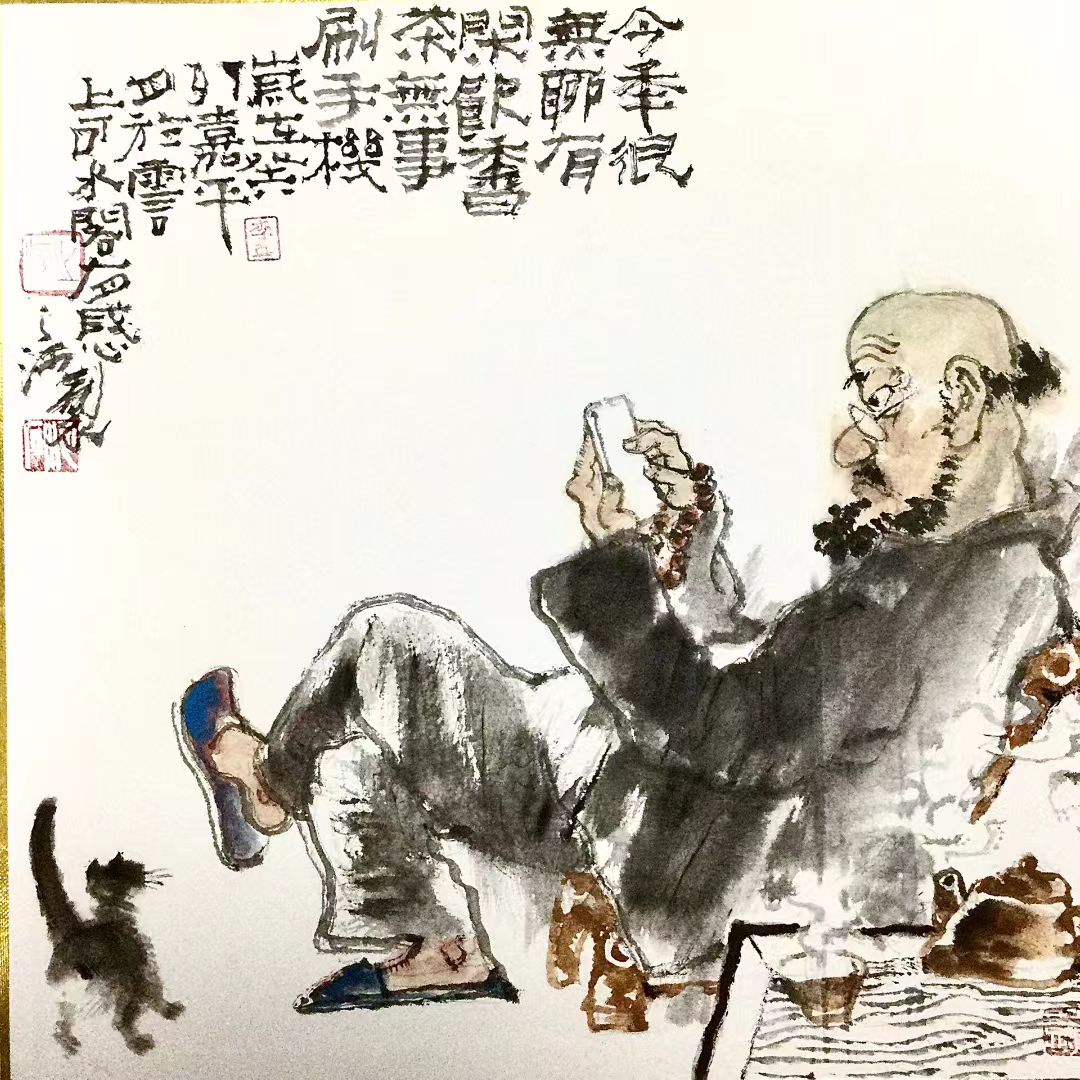 今年很
無聊有
閑飲香
茶無事
刷手機
歲在癸
卯嘉平
月於雲
上可水閣有感